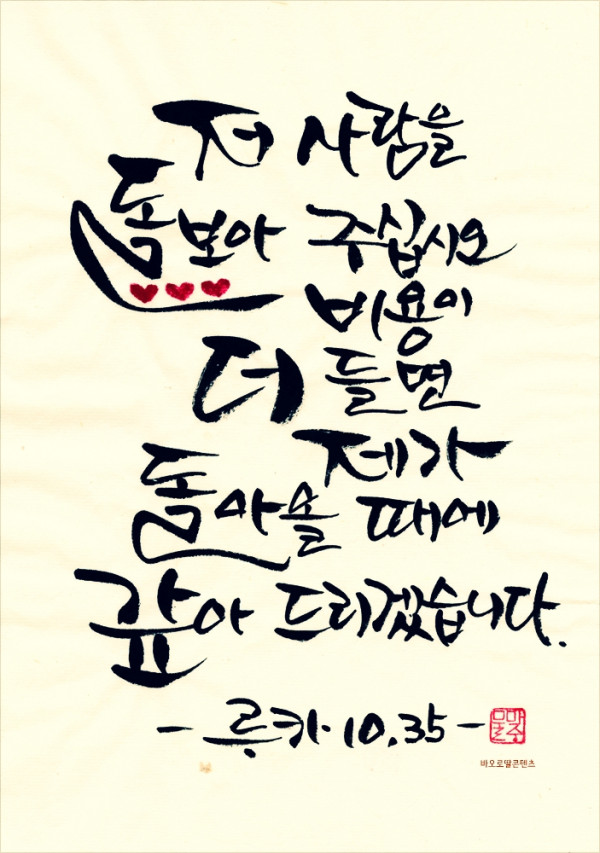 저 사람을
돌보아 주십시오
비용이
더 들면
제가
돌아올 때에
갚아 드리겠습니다.
- 루카. 10,35 -
바오로딸콘텐츠